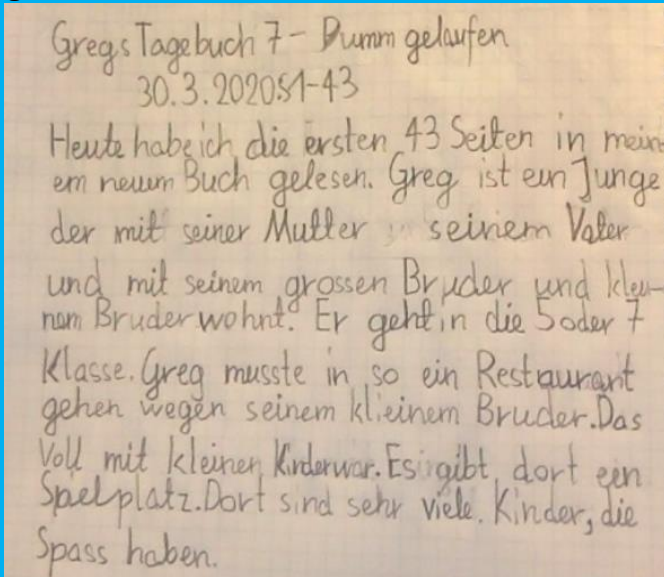 Gregs Tagebuch 7 - Dumm gelaufen
30.3.2020 S1-43
Heute habe ich die ersten 43 Seiten in mein-
em neuem Buch gelesen. Greg ist ein Junge
der mit seiner Mutter seinem Vater
und mit seinem grossen Bruder und klei-
nem Bruder wohnt. Er geht in die 5 oder 7
Klasse. Greg musste in so ein Restaurant
gehen wegen seinem kleinem Bruder. Das
Voll mit kleinen Kinder war. Es gibt dort ein
Spielplatz. Dort sind sehr viele. Kinder, die
Spass haben.